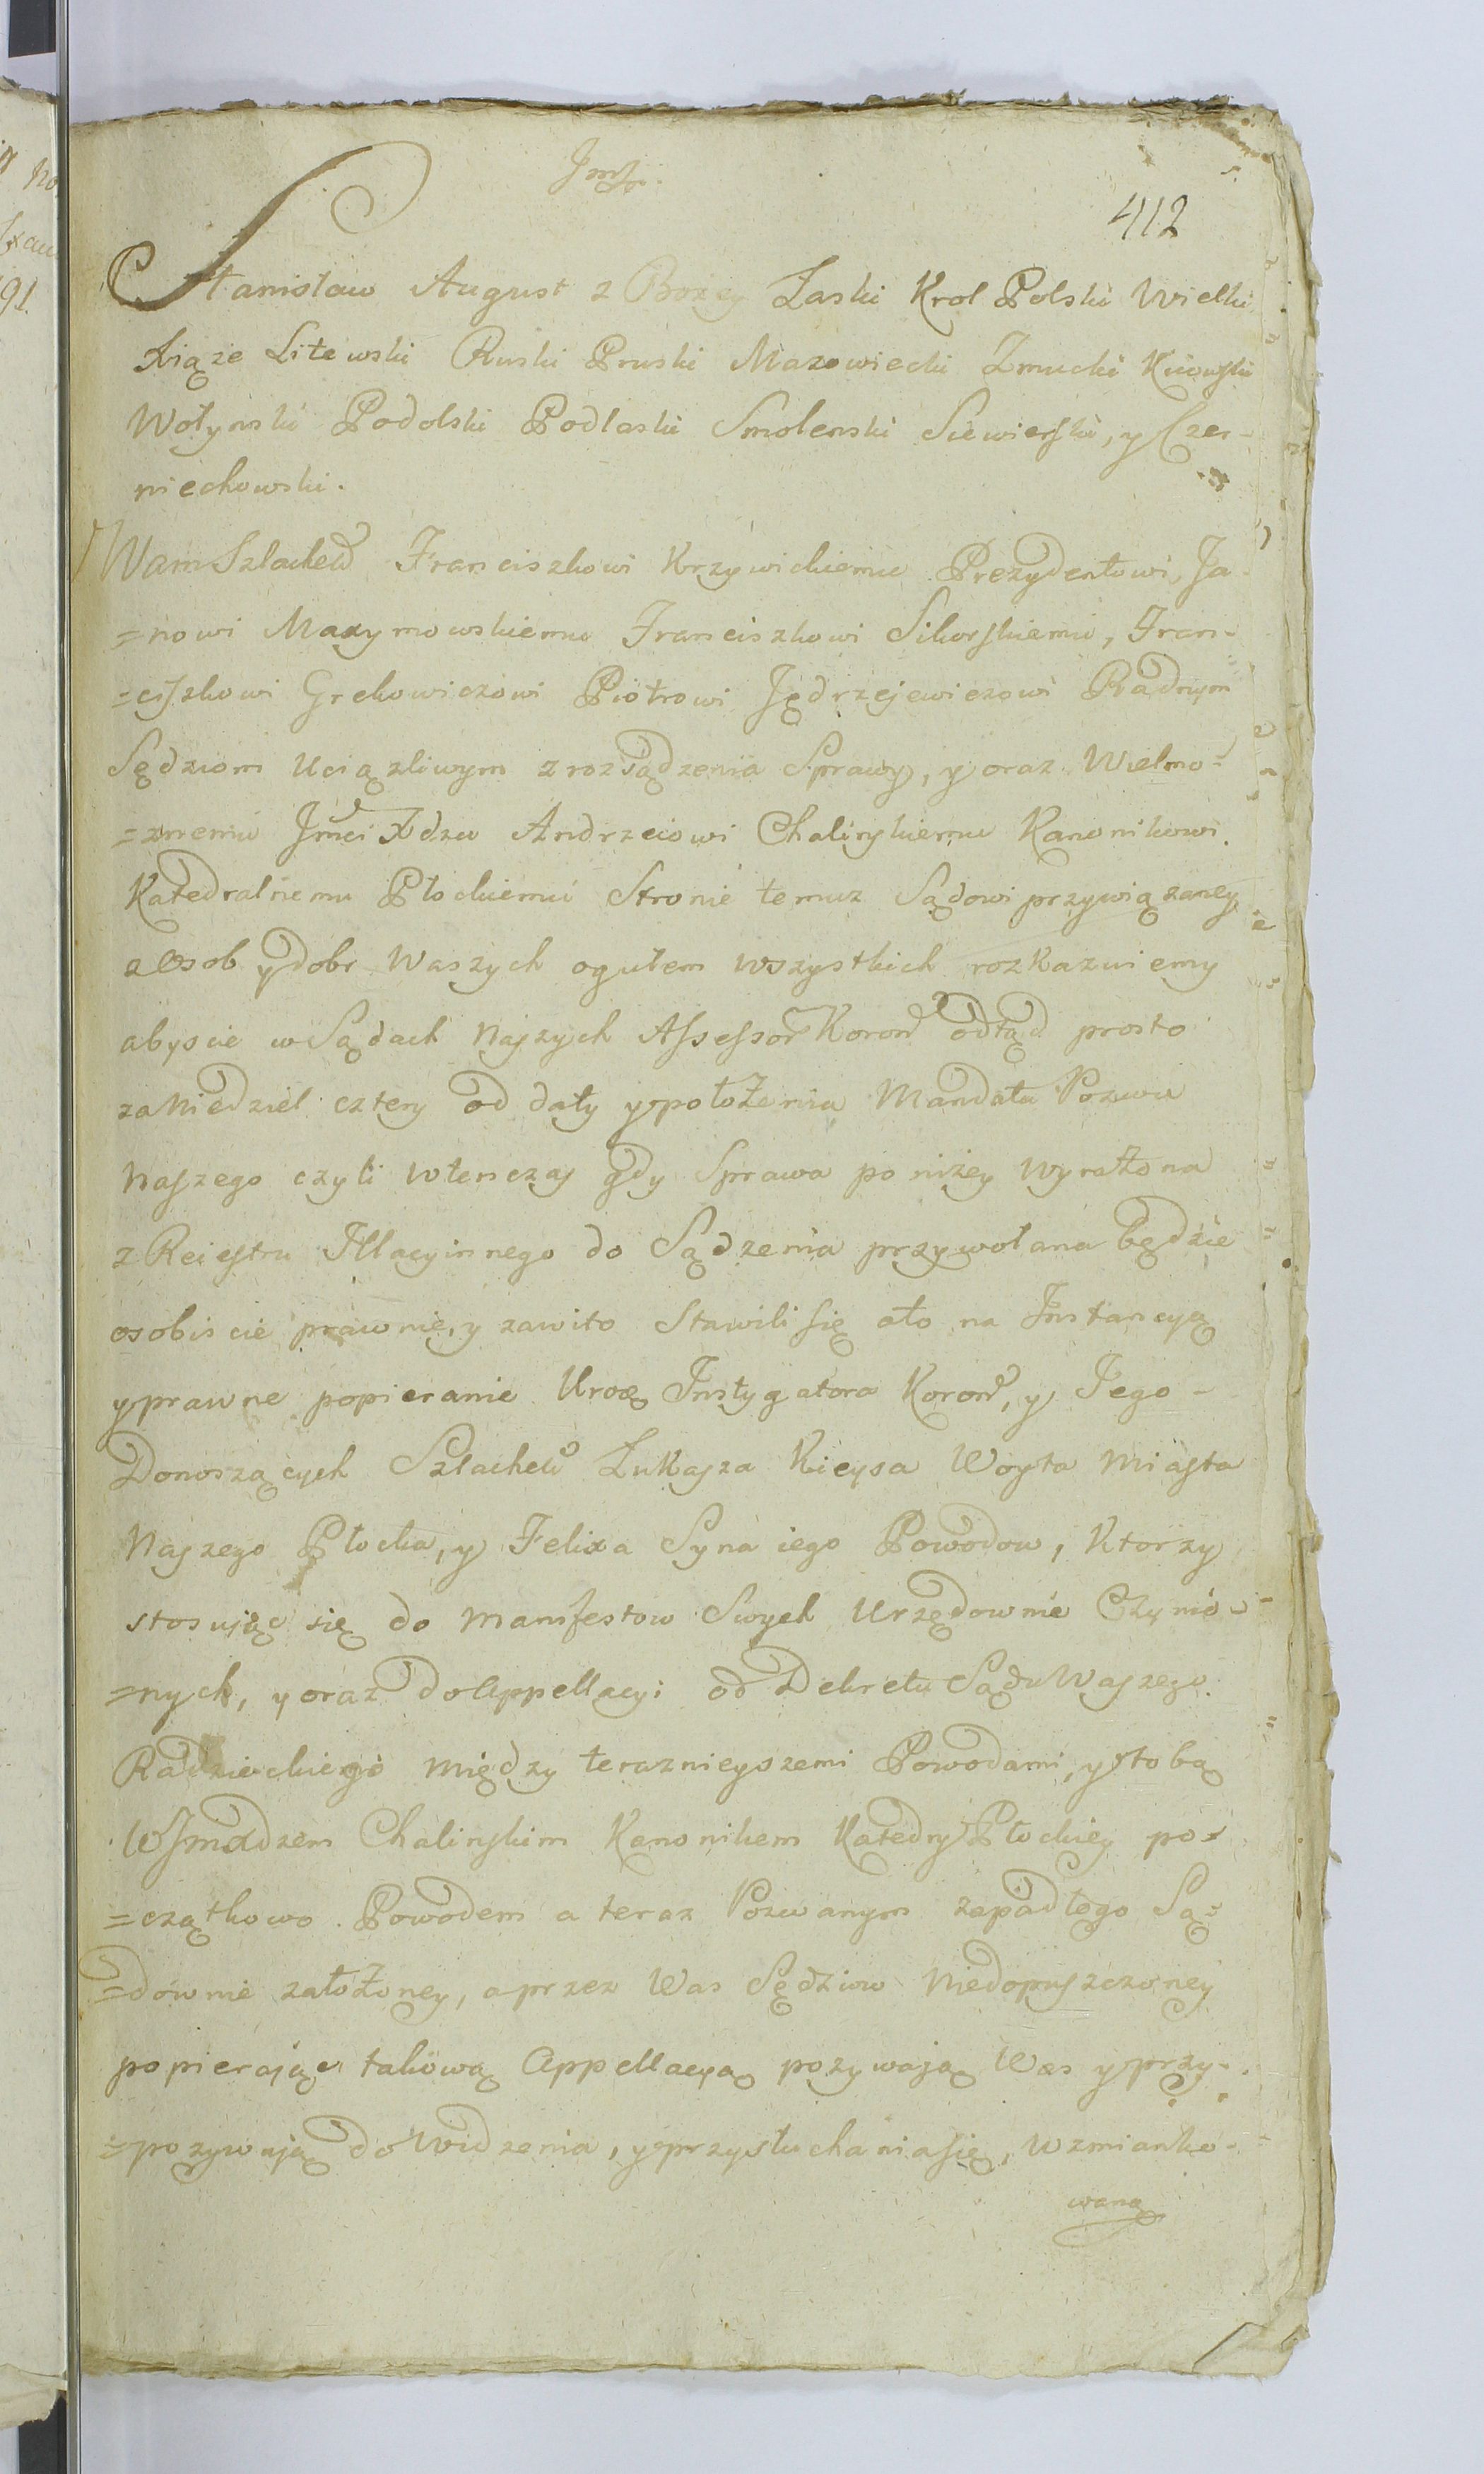 412
Stanisław August z Bozey Łaski Krol Polski Wielki
Xiąze Litewski Ruski Pruski Mazowiecki Zmucki Kiiowski
Wołynski Podolski Podlaski Smolenski Siewierski, y Czer-
niechowski.
Wam Szlachetd Franciszkowi Krzywickiemu Prezydentowi, Ja-
=nowi Maxymowskiemu Franciszkowi Sikorskiemu, Fran-
=ciszkowi Grekowiczowi Piotrowi Jędrzejewiczowi Radnym
Sędziom Uciązliwym z rozsądzenia Sprawy, y oraz Wielmo-
=znemu Jmci Xdzu Andrzeiowi Chalinskiemu Kanonikowi
Katedralnemu Płockiemu Stronie temuz Sądowi przywiązaney
z Osob y dobr Waszych ogułem wszystkich rozkazuiemy
abyscie w Sądach Naszych Assessor Koron odtąd prosto
za Niedziel cztery od daty y położenia Mandatu Pozwu
Naszego czyli wtenczas gdy Sprawa poniżey wyrażona
z Reiestru Illacyinnego do Sądzenia przywołana będzie
osobiscie prawnie, y zawito Stawili się ato na Instancyą
y prawne popieranie Uroę Instygatora Koron, y Jego-
Donoszących Szlachetd Łukasza Kieysa Woyta Miasta
Naszego Płocka, y Felixa Syna iego Powodow, Ktorzy
stosując się do Manifestow Swych Urzędownie Czynio-
=nych, y oraz do Appellacyi od Dekretu Sądu Waszego
Radzieckiego między teraznieyszemi Powodami, y tobą
WJmXdzem Chalinskim Kanonikem Katedry Płockiey po-
=czątkowo Powodem a teraz Pozwanym zapadłego Są-
=downie założoney, a przez Was Sędziow Niedopuszczoney
popierając takową Appellacyą pozywają Was y przy-
=pozywają do Widzenia, y przysłuchania się, wzmianko-
waną